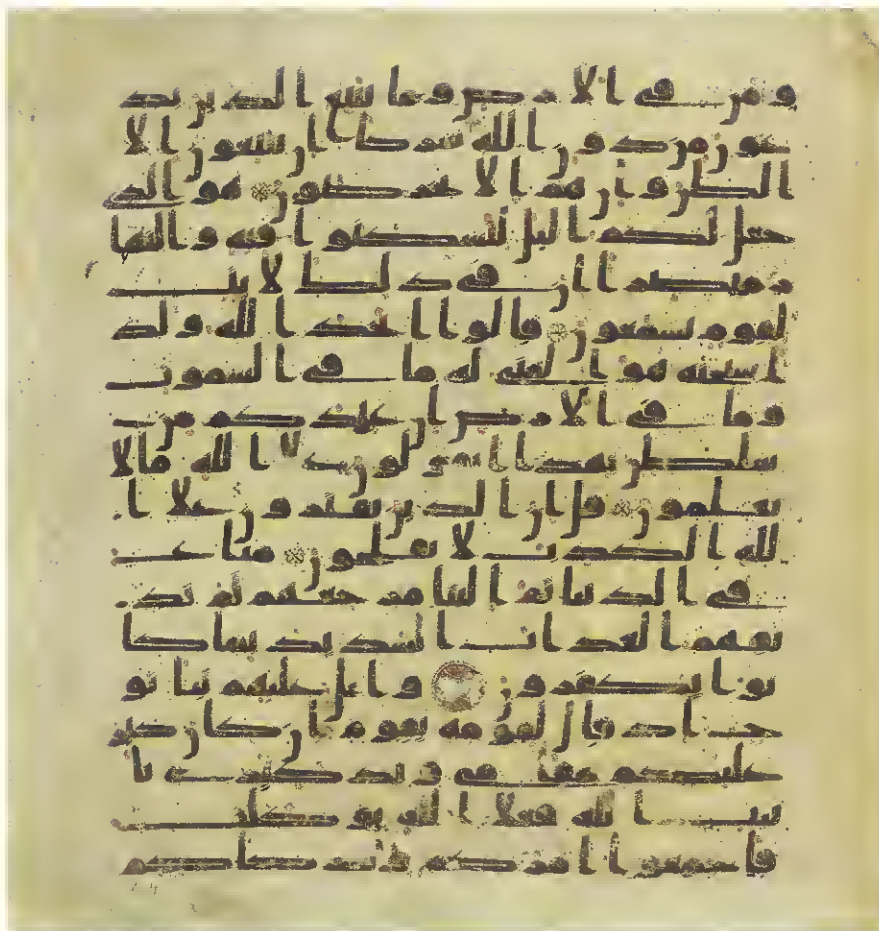 ومن في الارض وما يتبع الذين يد
عون من دون الله شركا ان يتبعون الا
الظن وان هم الا يخرصون هو الذي
جعل لكم اليل لتسكنوا فيه والنها
ر مبصرا ان في ذلك لايت
لقوم يسمعون قالوا اتخذ الله ولد
ا سبحنه هو الغني له ما في السموت
وما في الارض ان عندكم من
سلطن بهذا اتقولون علي الله ما لا
تعلمون قل ان الذين يفترون علي ا
لله الكذب لا يفلحون متاع
في الدنيا ثم الينا مرجعهم ثم نذ
يقهم العذاب الشديد بما كا
نوا يكفرون واتل عليهم نبا نو
ح اذ قال لقومه يقوم ان كان كبر
عليكم مقامي وتذكيري با
يت الله فعلي الله توكلت
فاجمعوا امركم وشركاكم